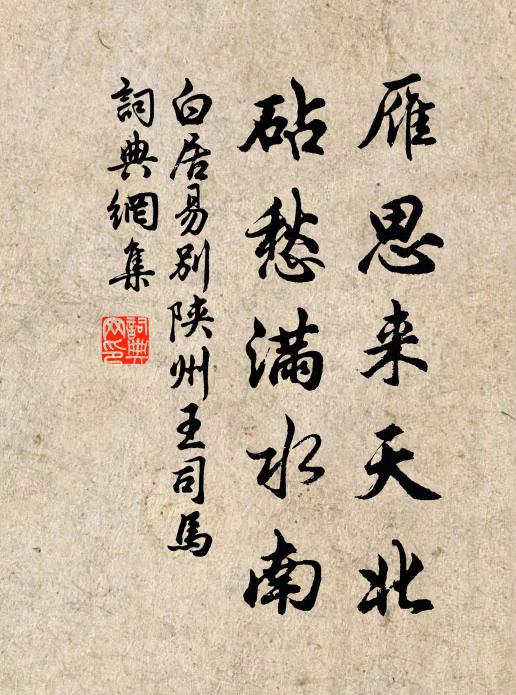 雁思来天北
砧愁满水南
白居易别陕州王司馬
詞典網集
詞典網印